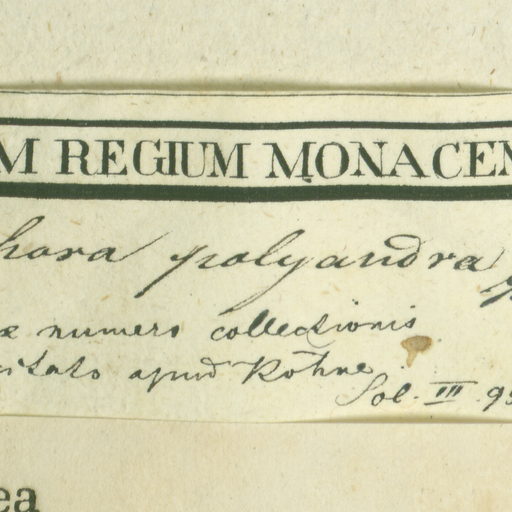 M REGIUM MONACEN
hora polyandra
numero collectionis
citato apud Köhne
Sol. III. 9
ea